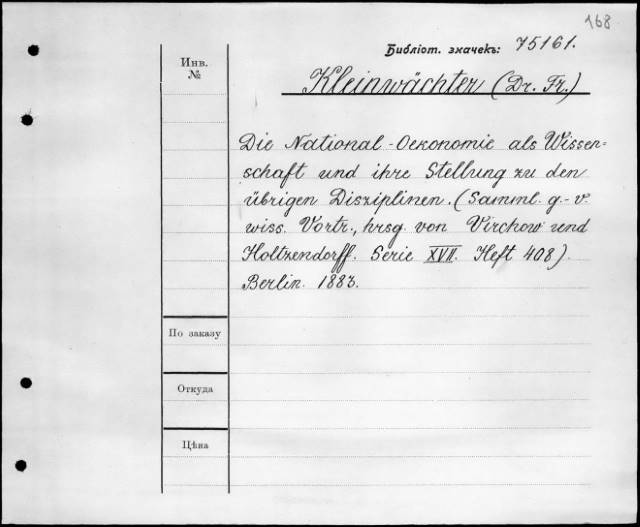 168
Библіот. значекъ: 75161.
Инв.
№
Kleinwächter (Dr. Fr.)
Die National-Oekonomie als Wissen=
schaft und ihre Stellung zu den
übrigen Disziplinen. (Samml. g.-v.
wiss. Vortr., hrsg. von Virchow und
Holtzendorff. Serie XVII. Heft 408).
Berlin. 1883.
По заказу
Откуда
Цѣна